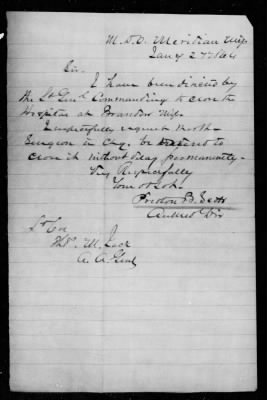 M.D.O. Meridian Miss
Jany 27 1864
Sir.
I have been directed by
the Lt Genl Commanding to close the
Hospital at Brandon Miss.
I respectfully request that
Surgeon in Chg. be ordered to
close it without delay permanently.
Very Respectfully
Your ob sst.
Preston B. Scott
Medical Dir
Lt Col
Thos. M. Jack
A. A. Genl